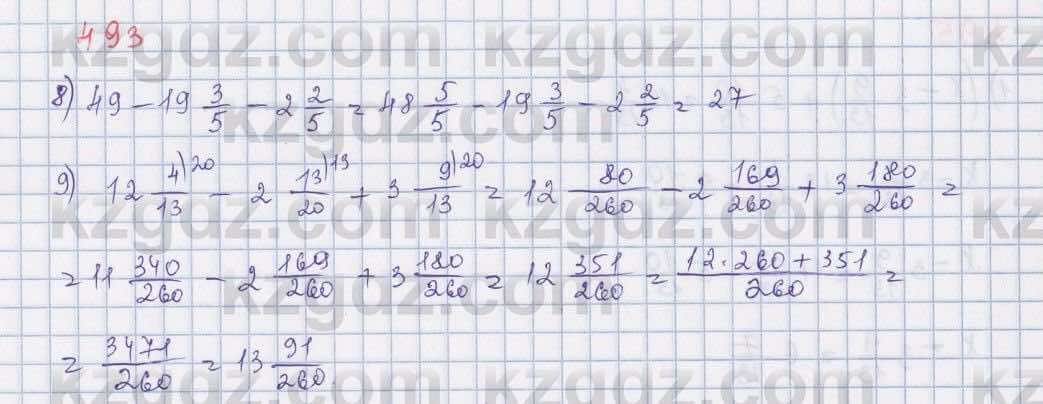 493
8) 49 - 19 3/5 - 2 2/5 = 48 5/5 - 19 3/5 - 2 2/5 = 27
9) 12 4)20/13 - 2 13)13/20 + 3 9)20/13 = 12 80/260 - 2 169/260 + 3 180/260 =
= 11 340/260 - 2 169/260 + 3 180/260 = 12 351/260 = 12·260+351/260 =
= 3471/260 = 13 91/260
kzgdz.com